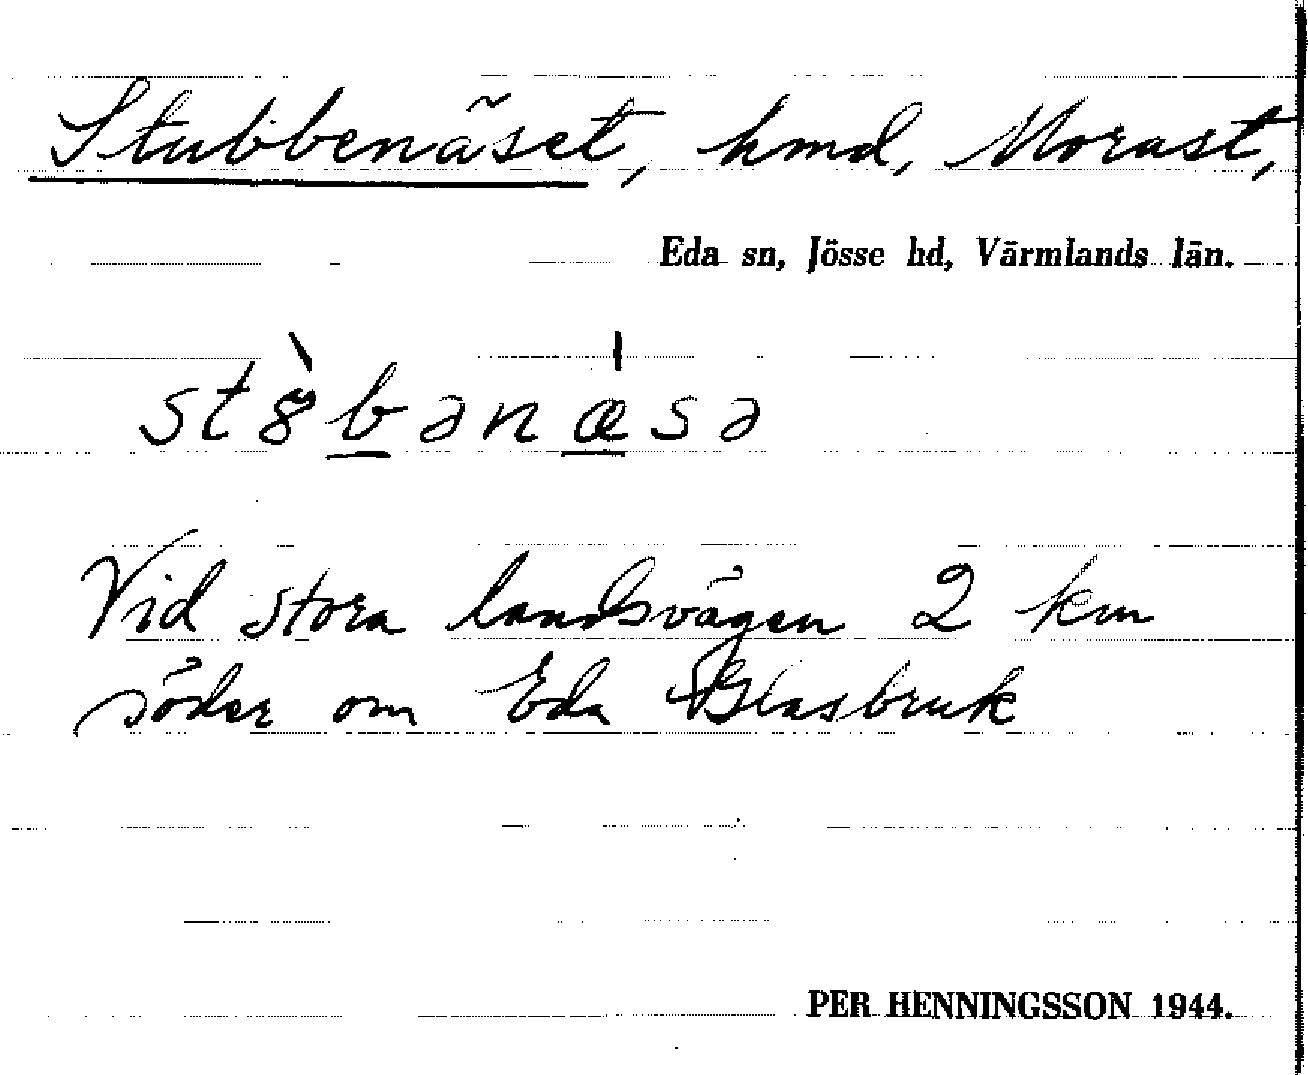 Stubbenäset, hmd, Morast,
Eda sn, Jösse hd, Värmlands län.
st8̀bənæ̍sə
Vid stora landsvägen 2 km
söder om Eda Glasbruk
PER HENNINGSSON 1944.